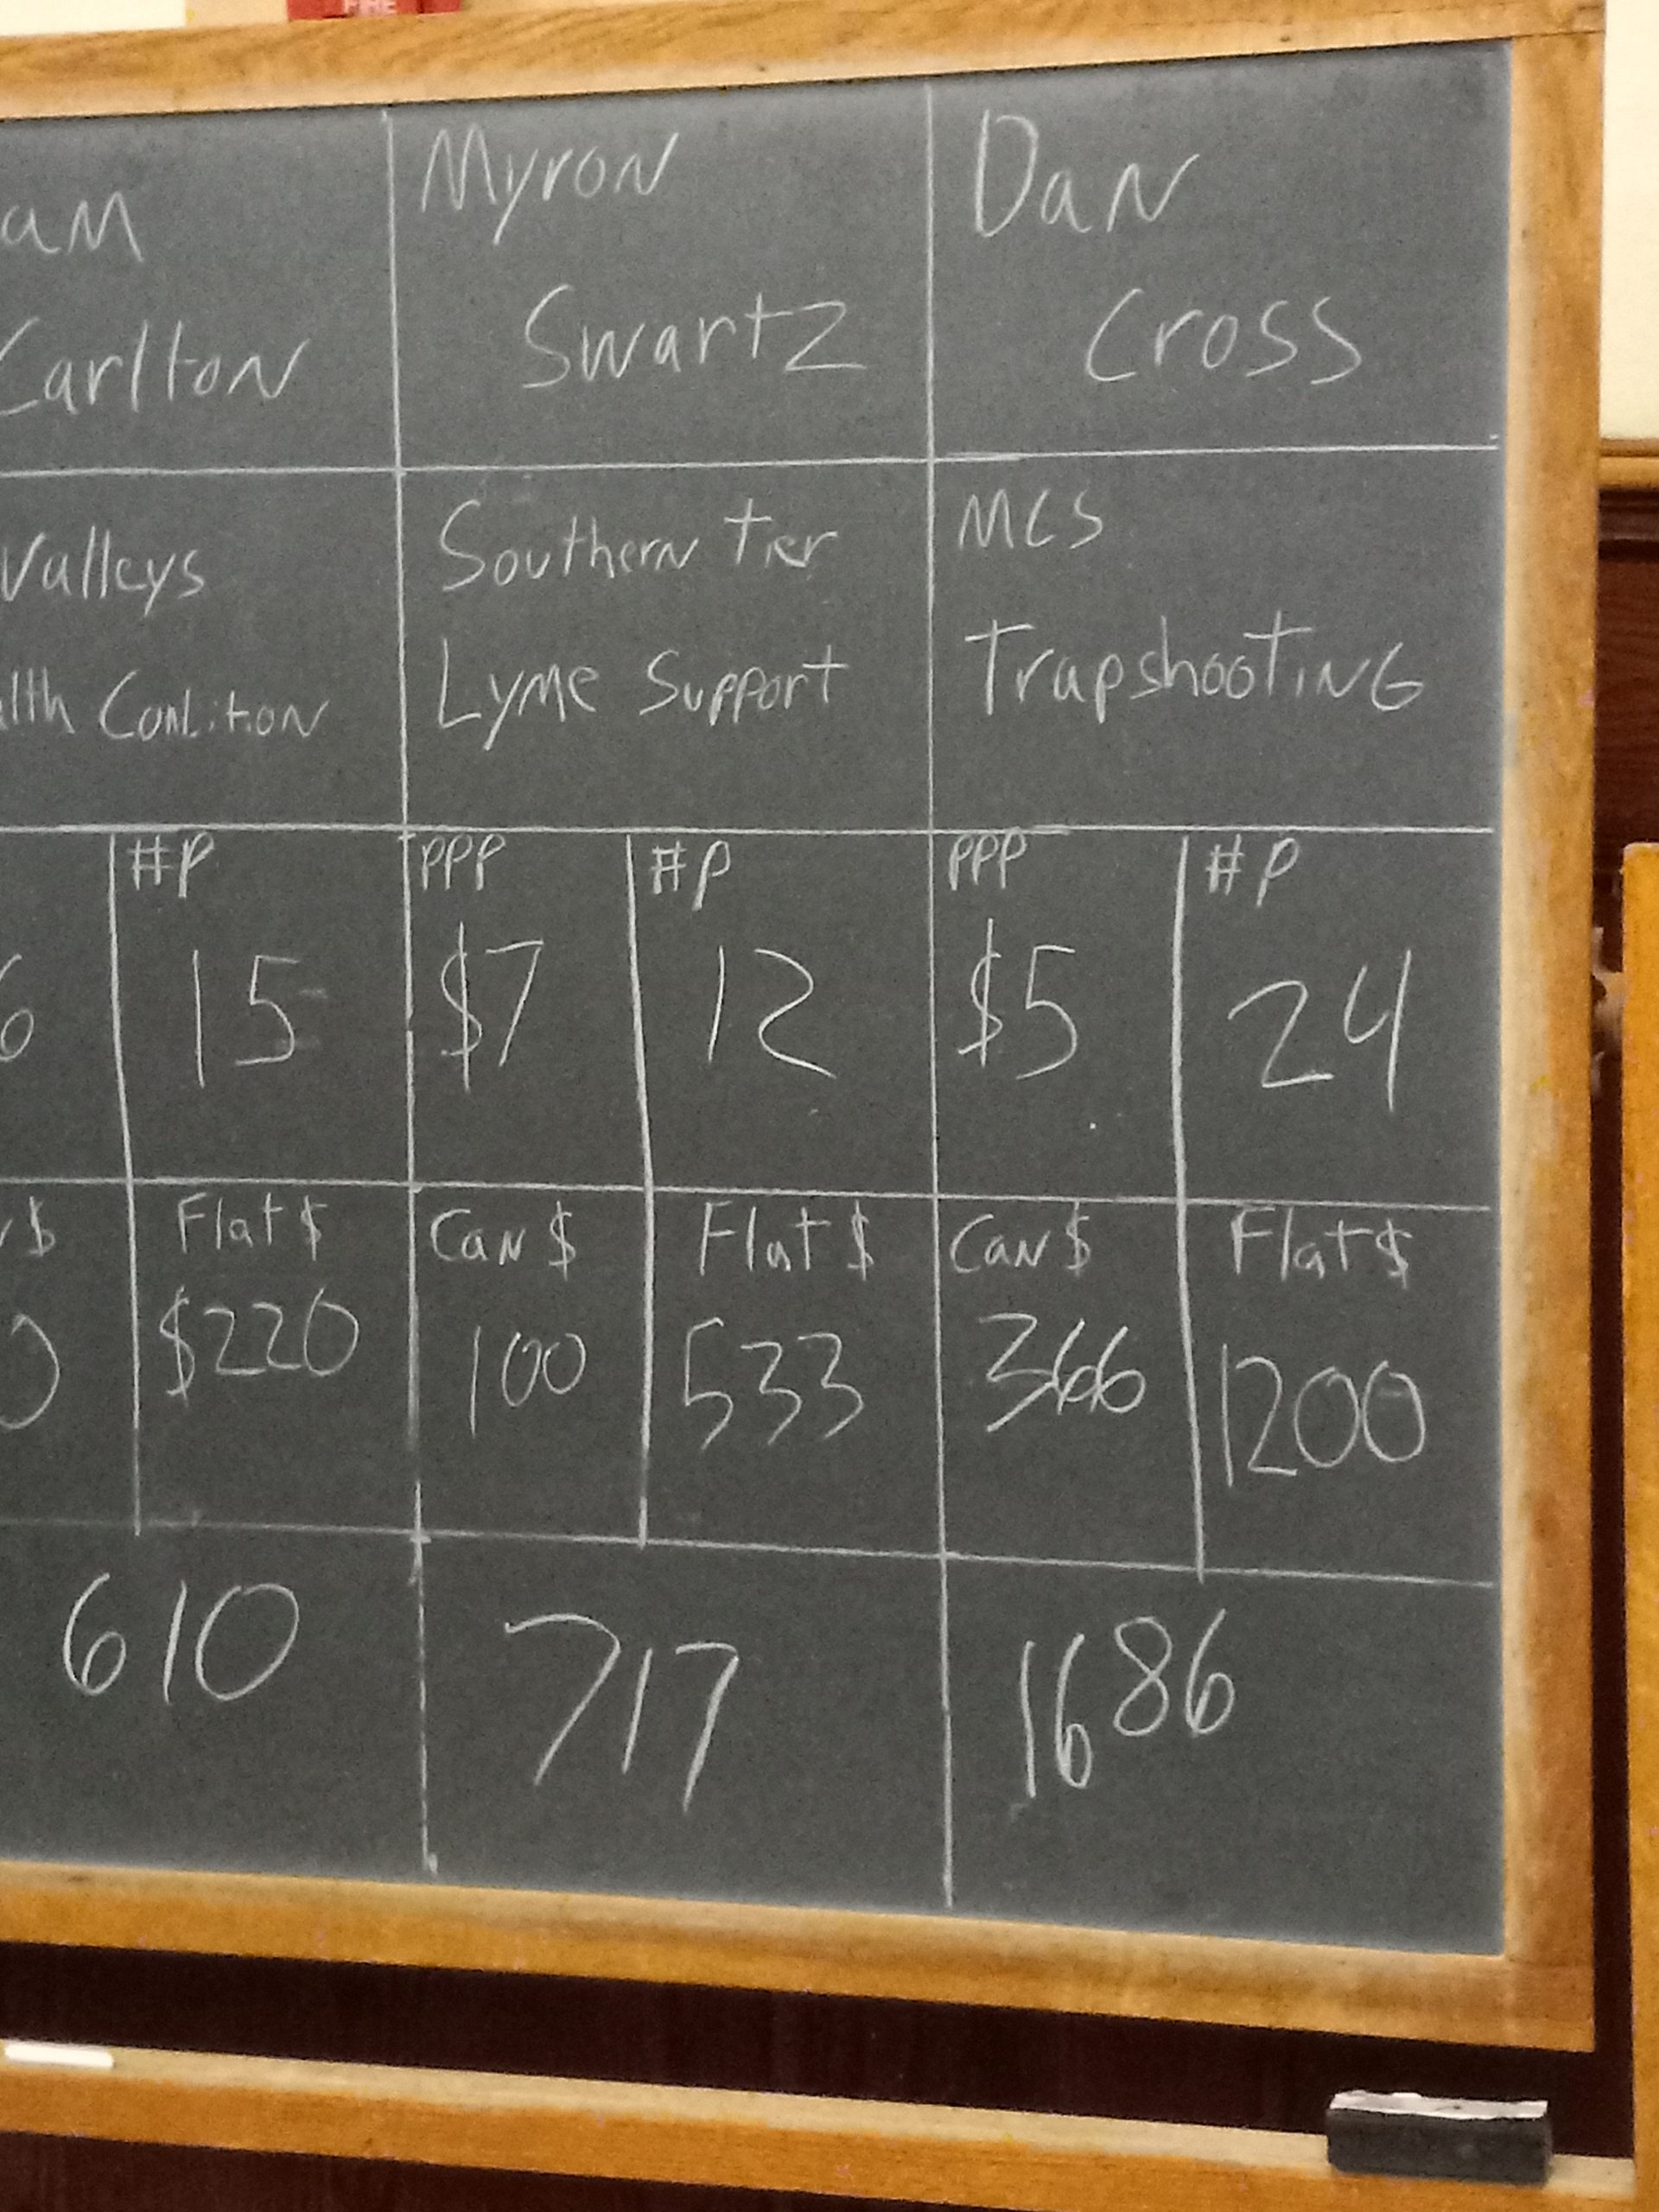 FIRE
am
Carlton
Myron
Swartz
Dan
Cross
Valleys
alth Coalition
Southern Tier
Lyme Support
MCS
Trapshooting
#P
PPP
#P
PPP
#P
6
15
$7
12
$5
24
$
Flat $
Can $
Flat $
Can $
Flat $
0
$220
100
533
366
1200
610
717
1686